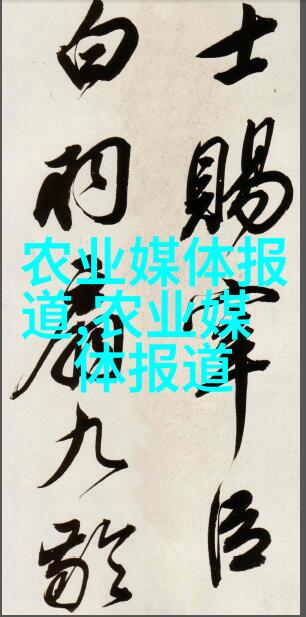 士賜宰臣
白羽扇九齡
农业媒体报
道,农业媒
体报道